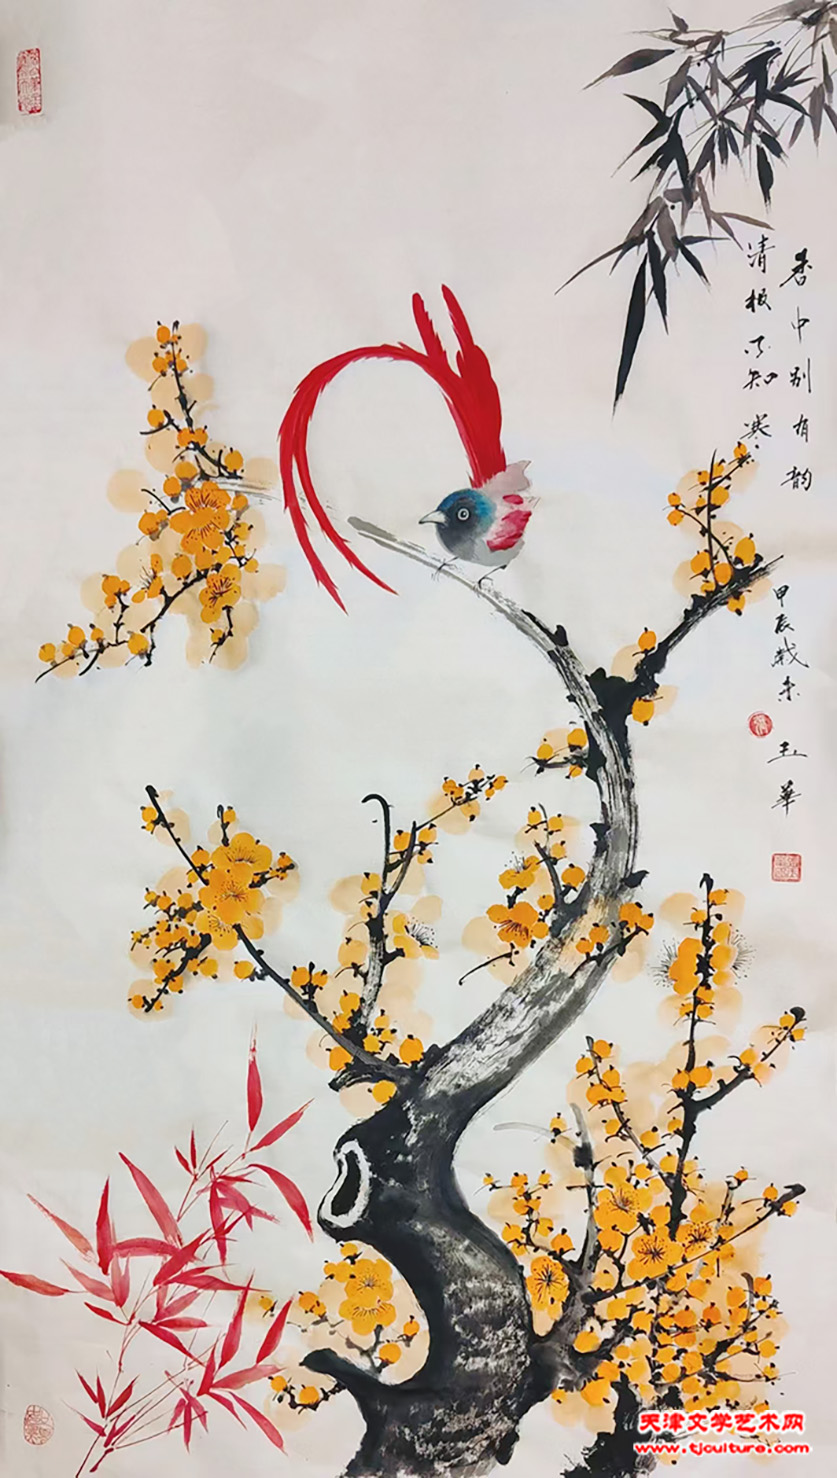 香中别有韵
清极不知寒
甲辰
玉華
天津文学艺术网
www.tjculture.com